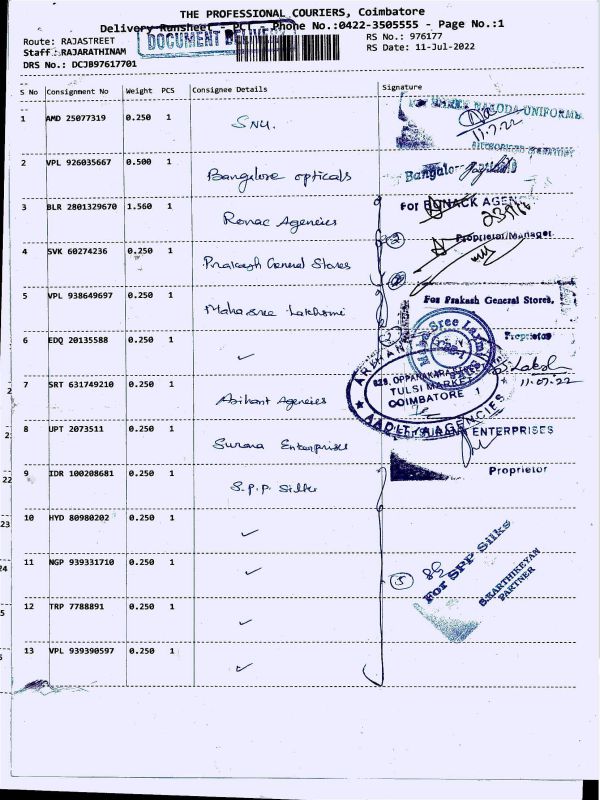 THE PROFESSIONAL COURIERS, Coimbatore
Delivery Runsheet - PCL - Phone No.:0422-3505555 - Page No.:1
Route: RAJASTREET
DOCUMENT DELIVERY
RS No.: 976177
Staff :RAJARATHINAM
RS Date: 11-Jul-2022
DRS No.: DCJB97617701
S No Consignment No Weight PCS Consignee Details Signature
1 AMD 25077319 0.250 1 SNU.
NAKODA UNIFORMS
11.7.22
2 VPL 926035667 0.500 1 Bangalore opticals
Bangalore Opticals
3 BLR 2801329670 1.560 1 Ronac Agencies
For RONACK AGEN
Proprietor/Manager
4 SVK 60274236 0.250 1 Prakash General Stores
2
5 VPL 938649697 0.250 1 Mahasree Lakshmi
For Prakash General Stores,
Proprietor
6 EDQ 20135588 0.250 1 ✓
Maha Sree Laxmi
11.07.22
7 SRT 631749210 0.250 1 Arihant Agencies
ARIHANT
629, OPPANAKARA
TULSI MARKET
COIMBATORE 1
AADIT AGENCIES
8 UPT 2073511 0.250 1 Surana Enterprises
SURANA ENTERPRISES
Proprietor
9 IDR 100208681 0.250 1 S.P.P Silks
10 HYD 80980202 0.250 1 ✓
11 NGP 939331710 0.250 1 ✓
5
For SPP Silks
S.KARTHIKEYAN
PARTNER
12 TRP 7788891 0.250 1 ✓
13 VPL 939390597 0.250 1 ✓